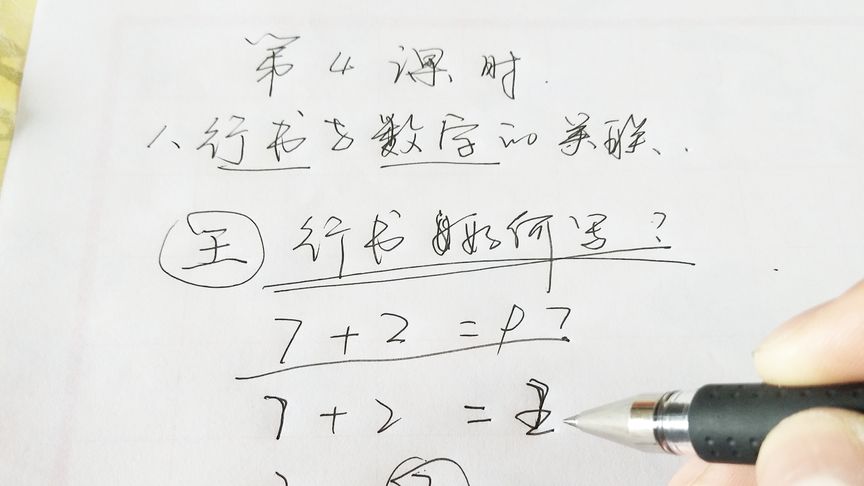 第4课时
1、行书与数字的关联、
王 行书如何写?
7+2=?
7+2=王